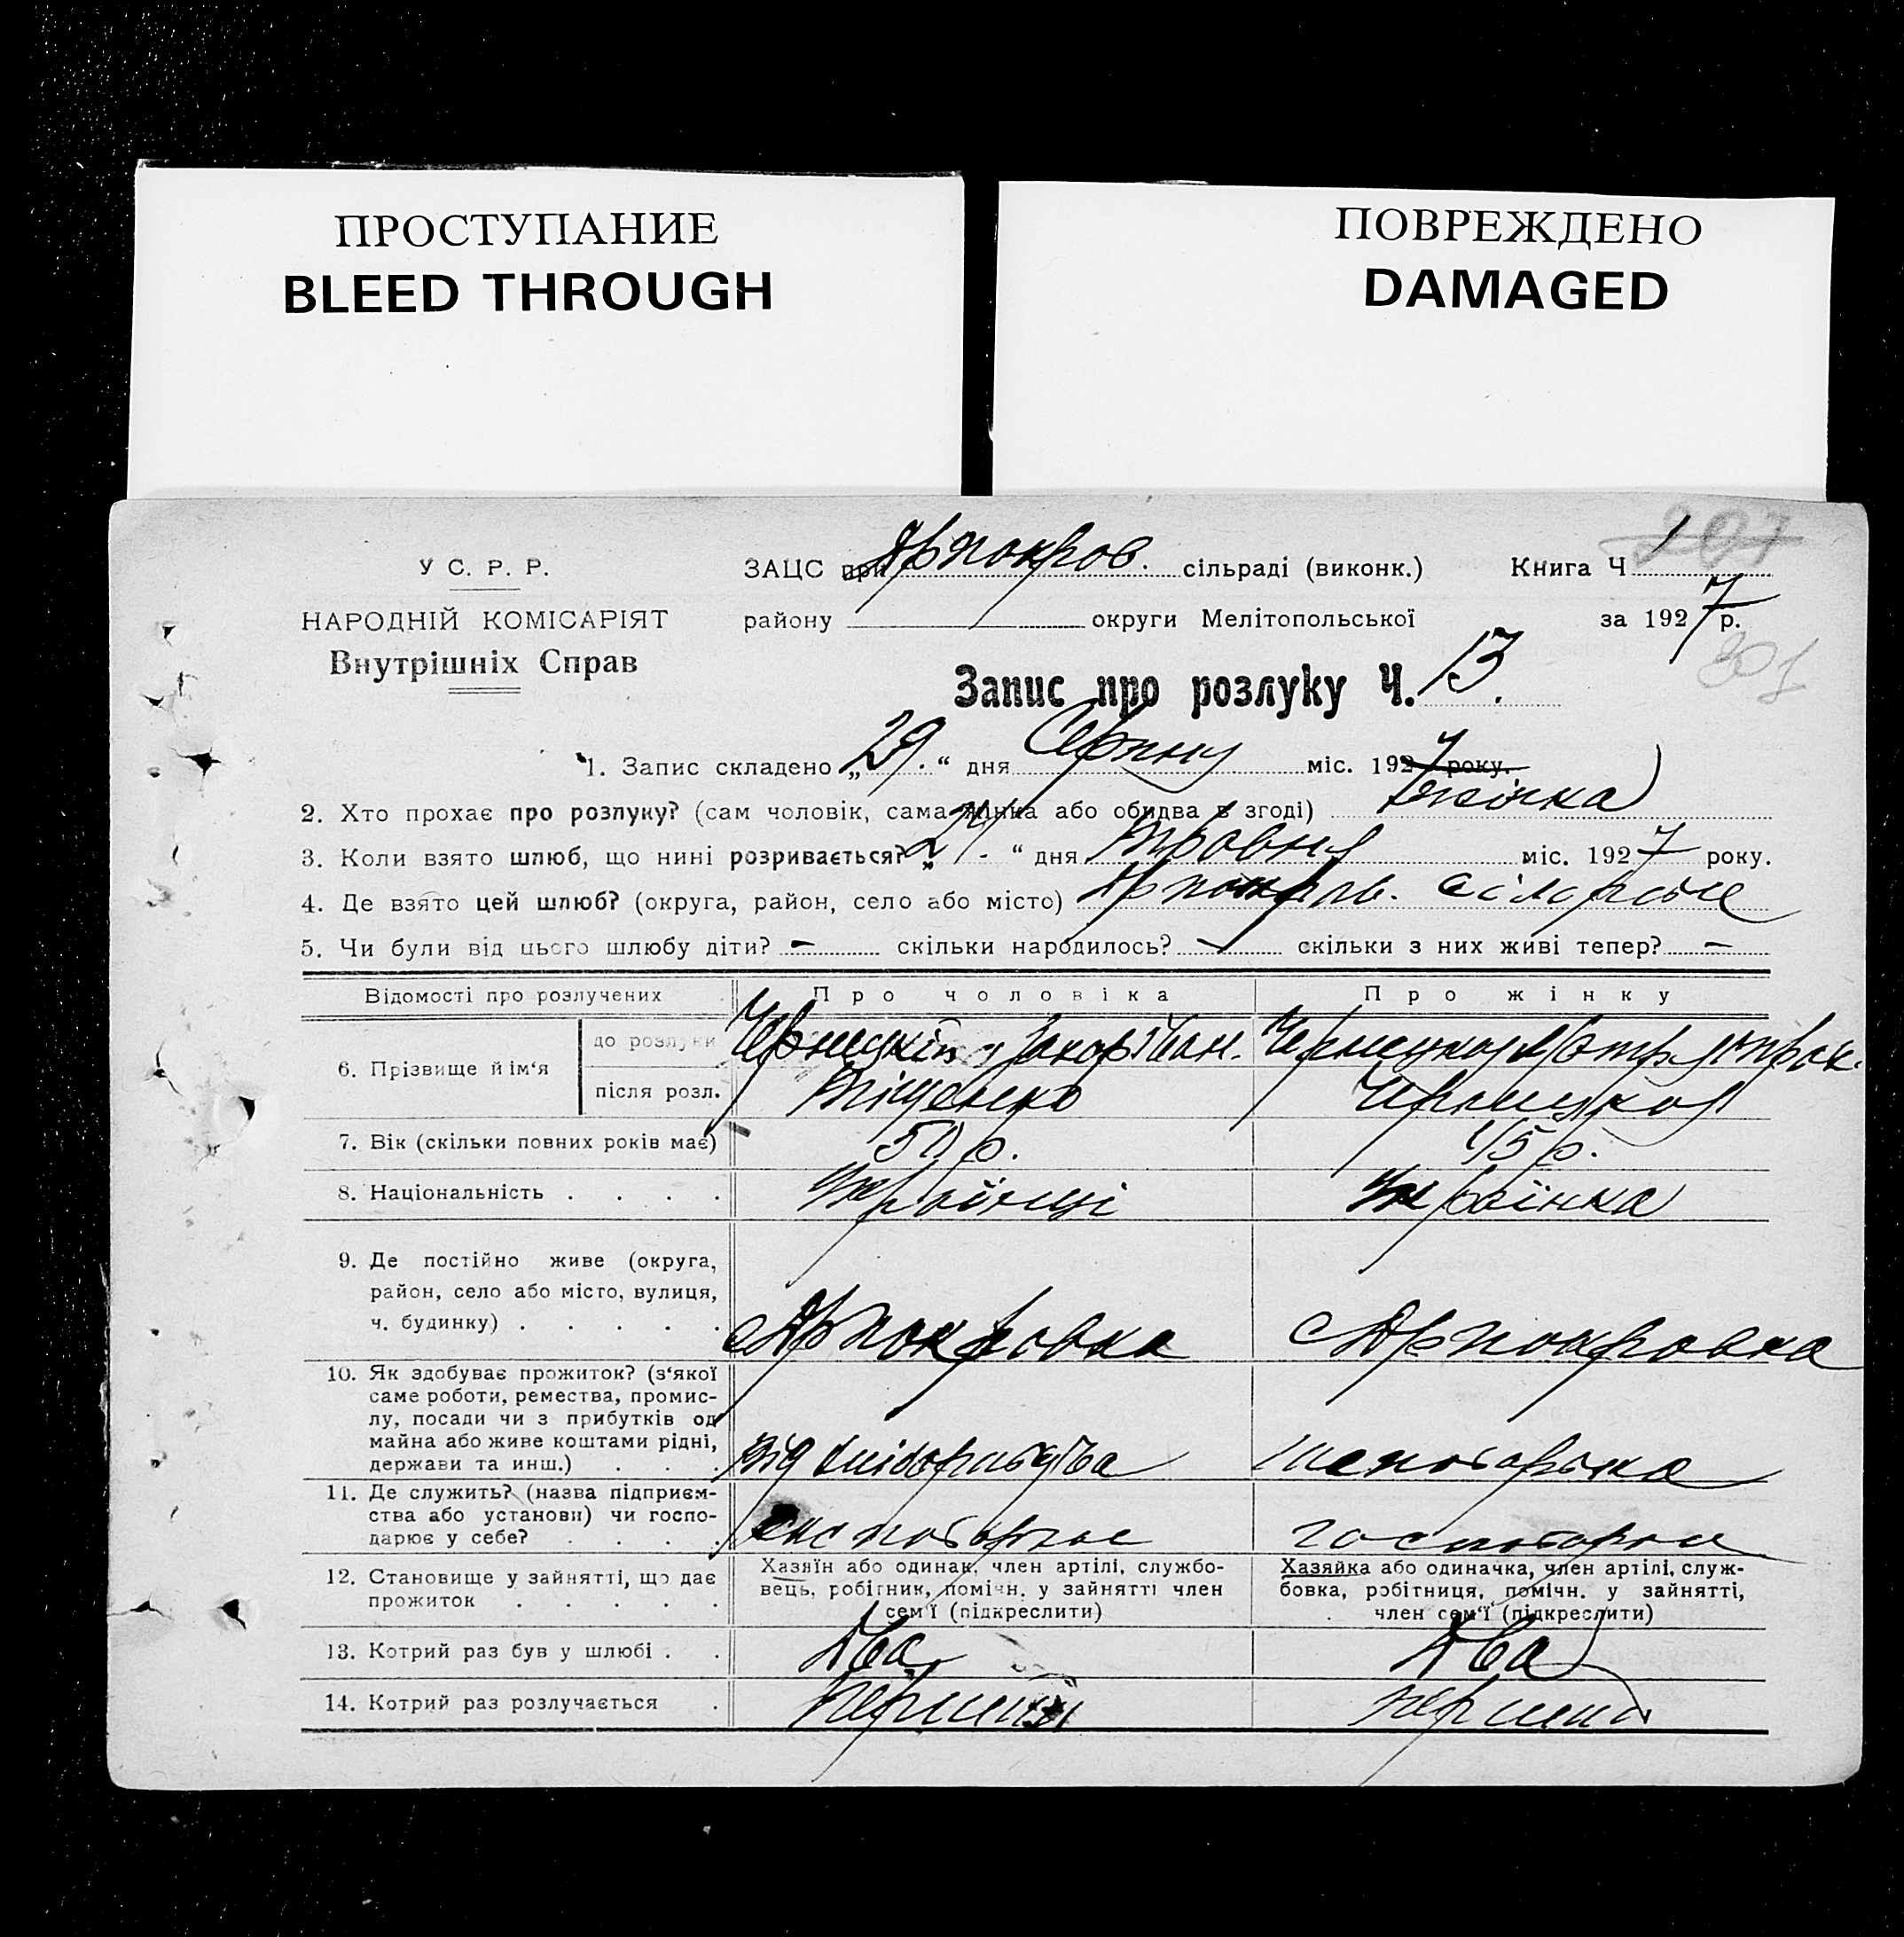 ПРОСТУПАНИЕ
BLEED THROUGH
ПОВРЕЖДЕНО
DAMAGED
У С. Р. Р.
НАРОДНІЙ КОМІСАРІЯТ
Внутрішніх Справ
ЗАЦС при Арпокров. сільраді (виконк.) Книга Ч 1
207
району округи Мелітопольської за 1927 р.
301
Запис про розлуку Ч. 13.
1. Запис складено „29.“ дня Серпня міс. 1927 року.
2. Хто прохає про розлуку? (сам чоловік, сама жінка або обидва в згоді) жінка
3. Коли взято шлюб, що нині розривається? „ “ дня Травня міс. 1927 року.
4. Де взято цей шлюб? (округа, район, село або місто) Арпокров.
5. Чи були від цього шлюбу діти? – скільки народилось? – скільки з них живі тепер? –
Відомості про розлучених Про чоловіка Про жінку
6. Прізвище й ім‘я
до розлуки
після розл. Тіщенко
7. Вік (скільки повних років має) 50 р. 45 р.
8. Національність . . . . Україньці Українка
9. Де постійно живе (округа,
район, село або місто, вулиця,
ч. будинку) . . . . . с Арпокровка с Арпокровка
10. Як здобуває прожиток? (з‘якої
саме роботи, ремества, промис-
лу, посади чи з прибутків од
майна або живе коштами рідні,
держави та инш.) . . . Від
11. Де служить? (назва підприєм-
ства або установи) чи госпо-
дарює у себе? . . . .
12. Становище у зайнятті, що дає
прожиток . . . . .
Хазяїн або одинак, член артілі, службо-
вець, робітник, помічн. у зайнятті член
сем‘ї (підкреслити)
Хазяйка або одиначка, член артілі, служ-
бовка, робітниця, помічн. у зайнятті,
член сем‘ї (підкреслити)
13. Котрий раз був у шлюбі . . Два Два
14. Котрий раз розлучається .